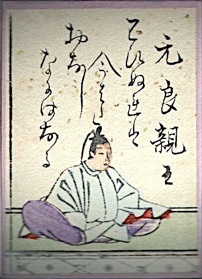 元良親王
わひぬれは
今はた
おなし
なにはなる